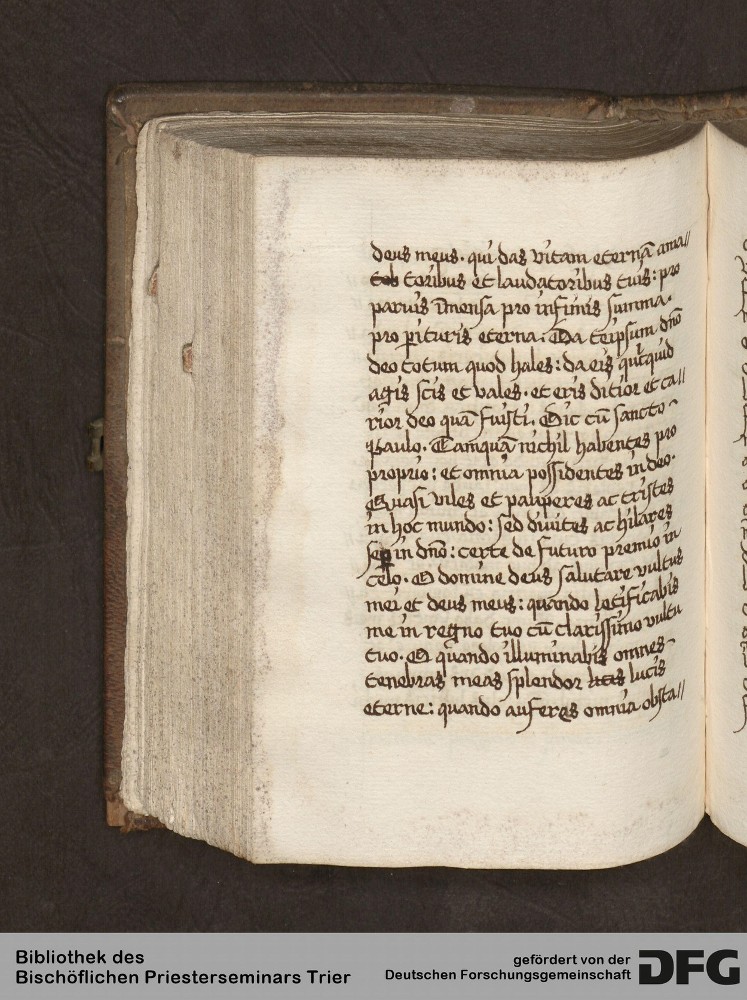 deus meus. qui das vitam eternā ama//
toribus et laudatoribus tuis: pro
paruis īmensa pro infimis summa.
pro perituris eterna. Da teipsum dño
deo totum quod hales: da eis quicquid
agis scis et vales. et eris ditior et ca//
rior deo quā fuisti. Dic cū sancto
Paulo. Tamquā nichil habentes pro
proprio: et omnia possidentes in deo.
Quasi viles et palaperes ac tristes
in hoc mundo: sed diuites ac hilares
in dño: certe de futuro premio in
celo. O domine deus salutare vultus
mei et deus meus: quando letificabis
me in regno tuo cū clarissimo vultu
tuo. O quando illuminabis omnes
tenebras meas splendor lucis
eterne: quando auferes omnia obsta//
Bibliothek des
Bischöflichen Priesterseminars Trier
gefördert von der
Deutschen Forschungsgemeinschaft DFG